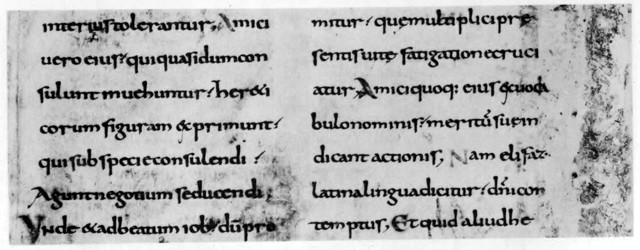 interius tolerantur; Amici
uero eius qui quasi dum con
sulunt inuehuntur her&i
corum figuram &primunt
qui sub specie consulendi
Agunt negotium seducendi;
Vnde & ad beatum iob dū pro
mitur quę multiplici pre
sentis uitę fatigatione cruci
atur; Amici quoq: eius & uoca
bulo nominis meritū suę in
dicant actionis; Nam elifaz
latina lingua dicitur dn̄i con
temptus; Et quid aliud he